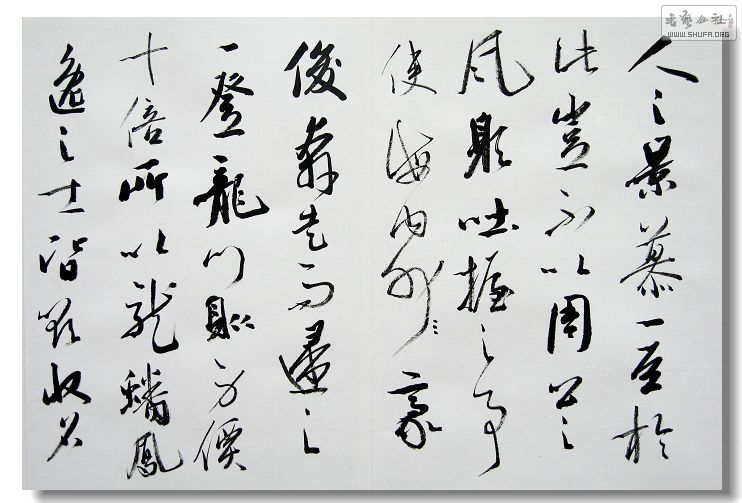 书艺公社
WWW.SHUFA.ORG
人之景慕一至於
此豈不以周公之
風躬吐握之事
使海内豪
俊奔走而歸之
一登龍门價
十倍所以龍蟠鳳
逸之士皆欲收名